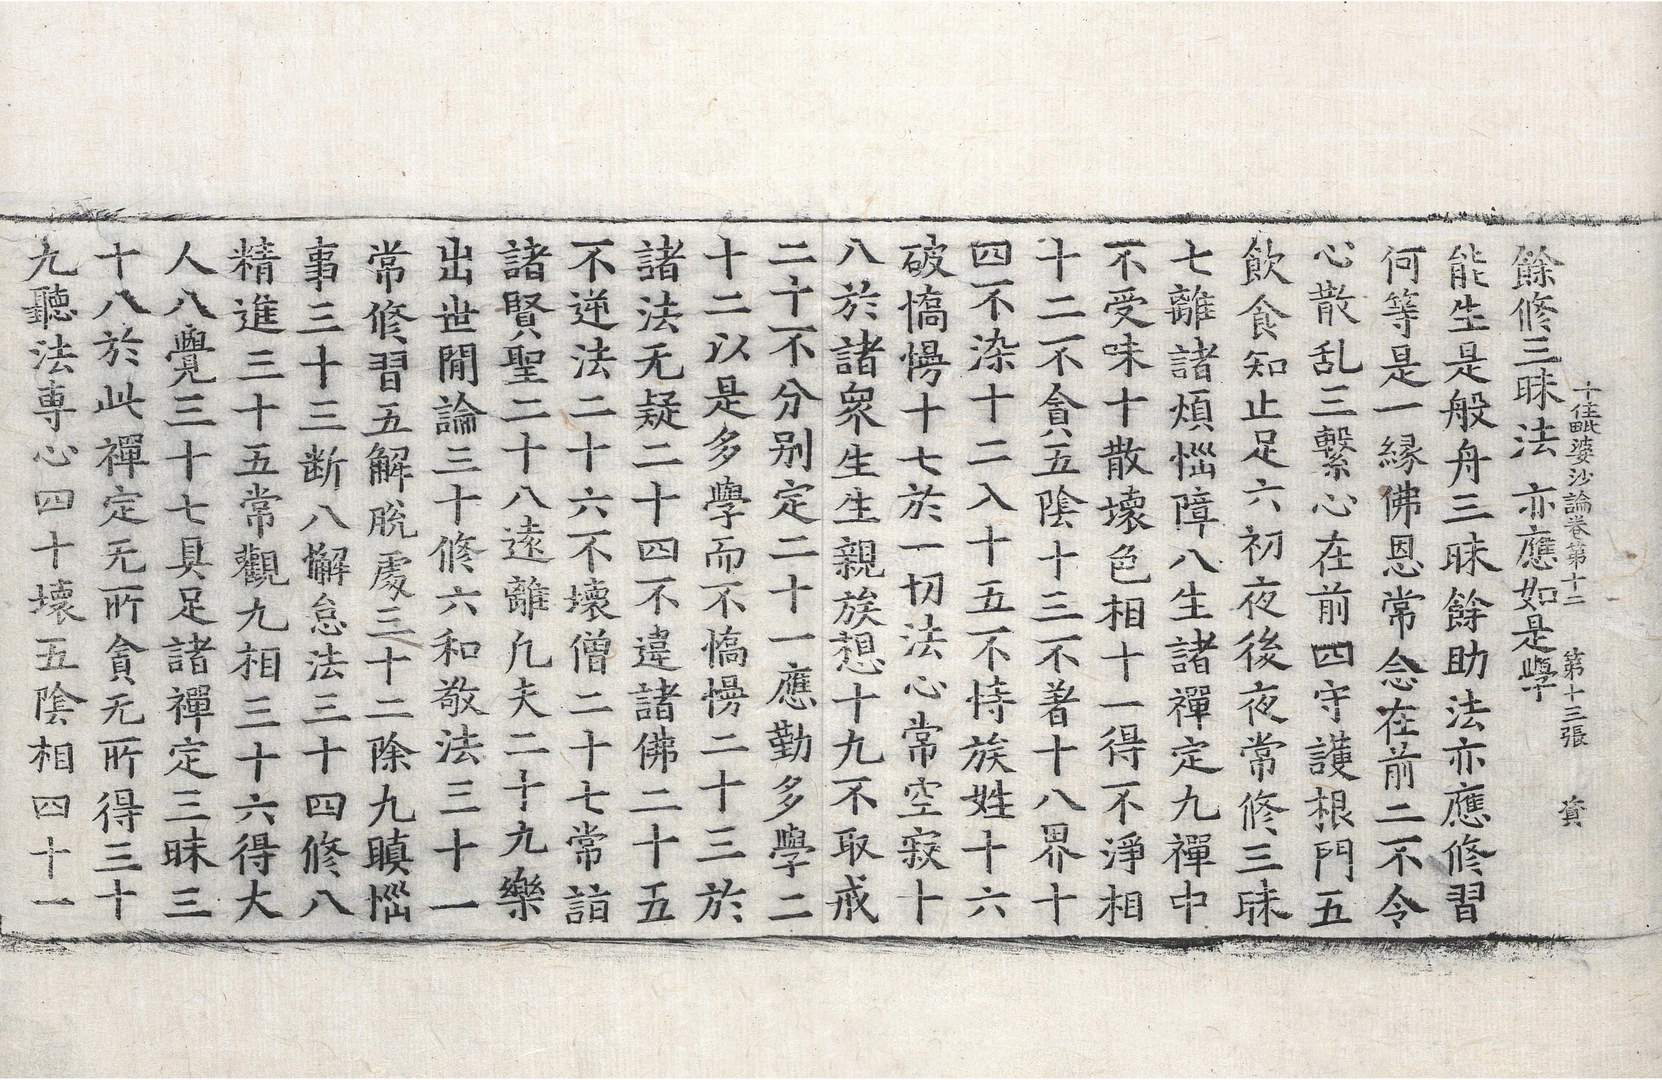 十住毗婆沙論卷第十二 第十三張 資
餘修三昧法亦應如是學
能生是般舟三昧餘助法亦應修習
何等是一緣佛恩常念在前二不令
心散乱三繫心在前四守護根門五
飲食知止足六初夜後夜常修三昧
七離諸煩惱障八生諸禪定九禪中
不受味十散壞色相十一得不淨相
十二不貪五陰十三不著十八界十
四不染十二入十五不恃族姓十六
破憍慢十七於一切法心常空寂十
八於諸眾生生親族想十九不取戒
二十不分別定二十一應勤多學二
十二以是多學而不憍慢二十三於
諸法无疑二十四不違諸佛二十五
不逆法二十六不壞僧二十七常詣
諸賢聖二十八遠離凡夫二十九樂
出世間論三十修六和敬法三十一
常修習五解脫處三十二除九瞋惱
事三十三断八懈怠法三十四修八
精進三十五常觀九相三十六得大
人八覺三十七具足諸禪定三昧三
十八於此禪定无所貪无所得三十
九聽法專心四十壞五陰相四十一